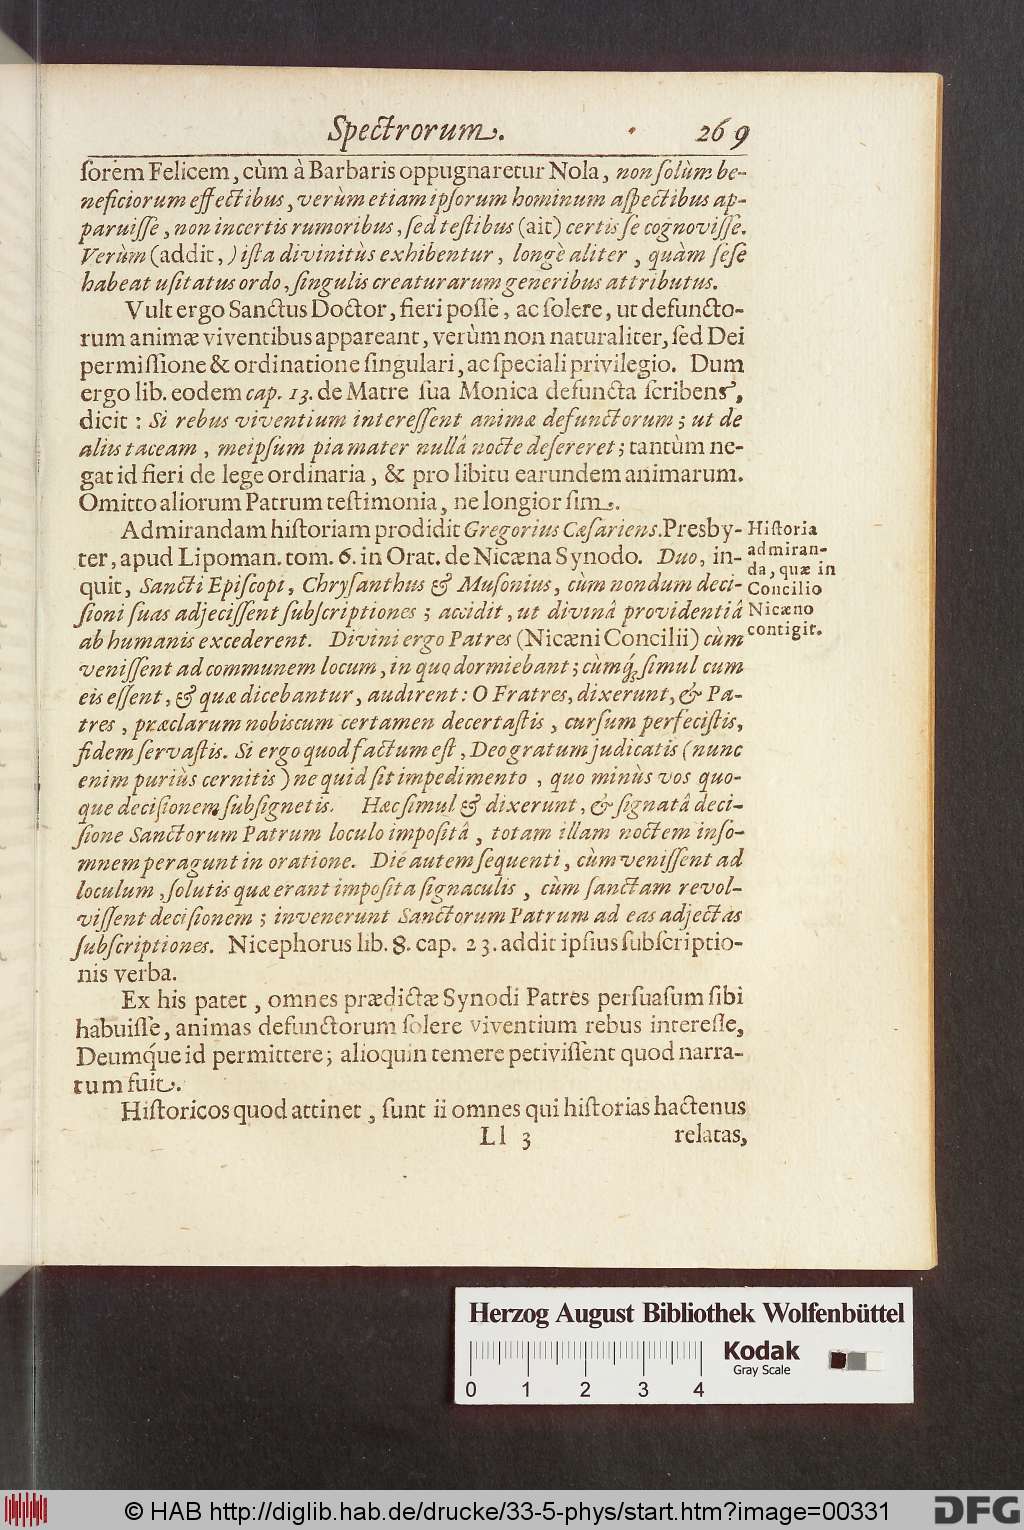 Spectrorum. 269
sorem Felicem, cùm à Barbaris oppugnaretur Nola, non solùm be-
neficiorum effectibus, verùm etiam ipsorum hominum aspectibus ap-
paruisse, non incertis rumoribus, sed testibus (ait) certis se cognovisse.
Verùm (addit,) ista divinitùs exhibentur, longè aliter, quàm sese
habeat usitatus ordo, singulis creaturarum generibus attributus.
Vult ergo Sanctus Doctor, fieri posse, ac solere, ut defuncto-
rum animæ viventibus appareant, verùm non naturaliter, sed Dei
permissione & ordinatione singulari, ac speciali privilegio. Dum
ergo lib. eodem cap. 13. de Matre sua Monica defuncta scribens,
dicit: Si rebus viventium interessent animæ defunctorum; ut de
aliis taceam, meipsum pia mater nullâ nocte desereret; tantùm ne-
gat id fieri de lege ordinaria, & pro libitu earundem animarum.
Omitto aliorum Patrum testimonia, ne longior sim.
Admirandam historiam prodidit Gregorius Cæsariens. Presby-
ter, apud Lipoman. tom. 6. in Orat. de Nicæna Synodo. Duo, in-
quit, Sancti Episcopi, Chrysanthus & Musonius, cùm nondum deci-
sioni suas adjecissent subscriptiones; accidit, ut divinâ providentiâ
ab humanis excederent. Divini ergo Patres (Nicæni Concilii) cùm
venissent ad communem locum, in quo dormiebant; cùmq́; simul cum
eis essent, & quæ dicebantur, audirent: O Fratres, dixerunt, & Pa-
tres, præclarum nobiscum certamen decertastis, cursum perfecistis,
fidem servastis. Si ergo quod factum est, Deo gratum judicatis (nunc
enim puriùs cernitis) ne quid sit impedimento, quo minùs vos quo-
que decisionem subsignetis. Hæc simul & dixerunt, & signatâ deci-
sione Sanctorum Patrum loculo impositâ, totam illam noctem inso-
mnem peragunt in oratione. Die autem sequenti, cùm venissent ad
loculum, solutis quæ erant imposita signaculis, cùm sanctam revol-
vissent decisionem; invenerunt Sanctorum Patrum ad eas adjectas
subscriptiones. Nicephorus lib. 8. cap. 23. addit ipsius subscriptio-
nis verba.
Ex his patet, omnes prædictæ Synodi Patres persuasum sibi
habuisse, animas defunctorum solere viventium rebus interesse,
Deumq́ue id permittere; alioquin temere petivissent quod narra-
tum fuit.
Historicos quod attinet, sunt ii omnes qui historias hactenus
Ll 3 relatas,
Historia
admiran-
da, quæ in
Concilio
Nicæno
contigit.
Herzog August Bibliothek Wolfenbüttel
Kodak
Gray Scale
0 1 2 3 4
© HAB http://diglib.hab.de/drucke/33-5-phys/start.htm?image=00331
DFG